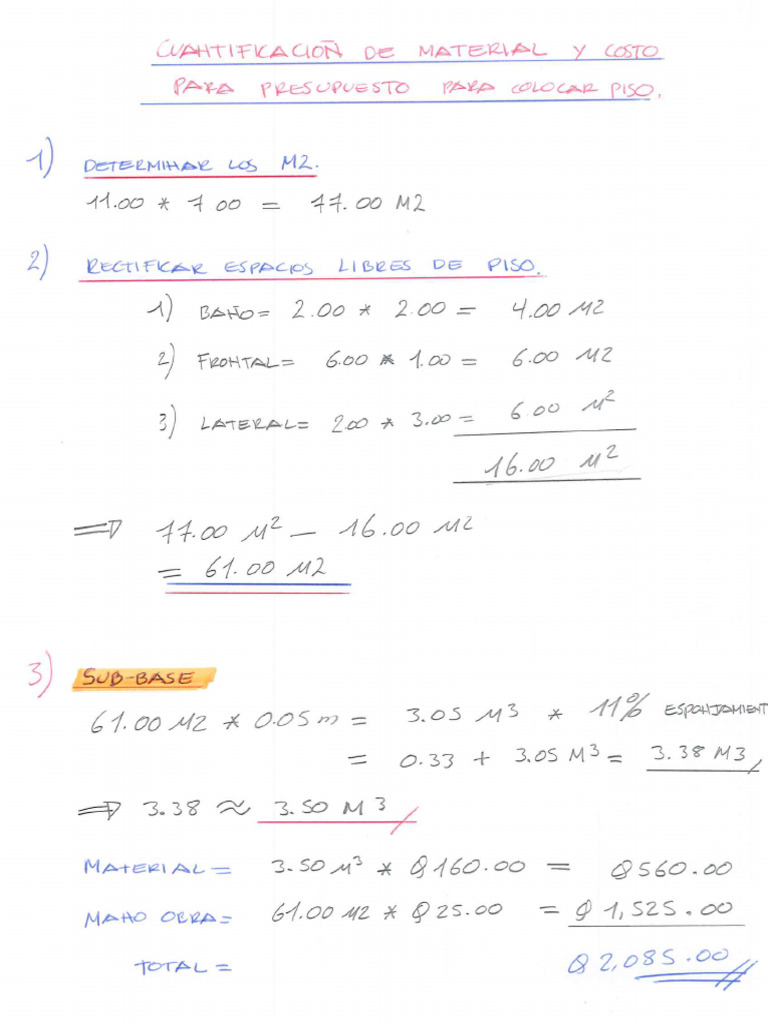 CUANTIFICACIOÑ DE MATERIAL Y COSTO
PARA PRESUPUESTO PARA COLOCAR PISO.
1) DETERMINAR LOS M2.
11.00 * 7 00 = 77.00 M2
2) RECTIFICAR ESPACIOS LIBRES DE PISO.
1) BAÑO = 2.00 * 2.00 = 4.00 M2
2) FRONTAL = 6.00 * 1.00 = 6.00 M2
3) LATERAL = 2.00 * 3.00 = 6.00 M²
16.00 M²
⇒ 77.00 M² - 16.00 M2
= 61.00 M2
3) SUB-BASE
61.00 M2 * 0.05 m = 3.05 M³ * 11% ESPONJAMIENT
= 0.33 + 3.05 M³ = 3.38 M3
⇒ 3.38 ≈ 3.50 M³
MATERIAL = 3.50 M³ * Q 160.00 = Q 560.00
MANO OBRA = 61.00 M2 * Q 25.00 = Q 1,525.00
TOTAL = Q 2,085.00